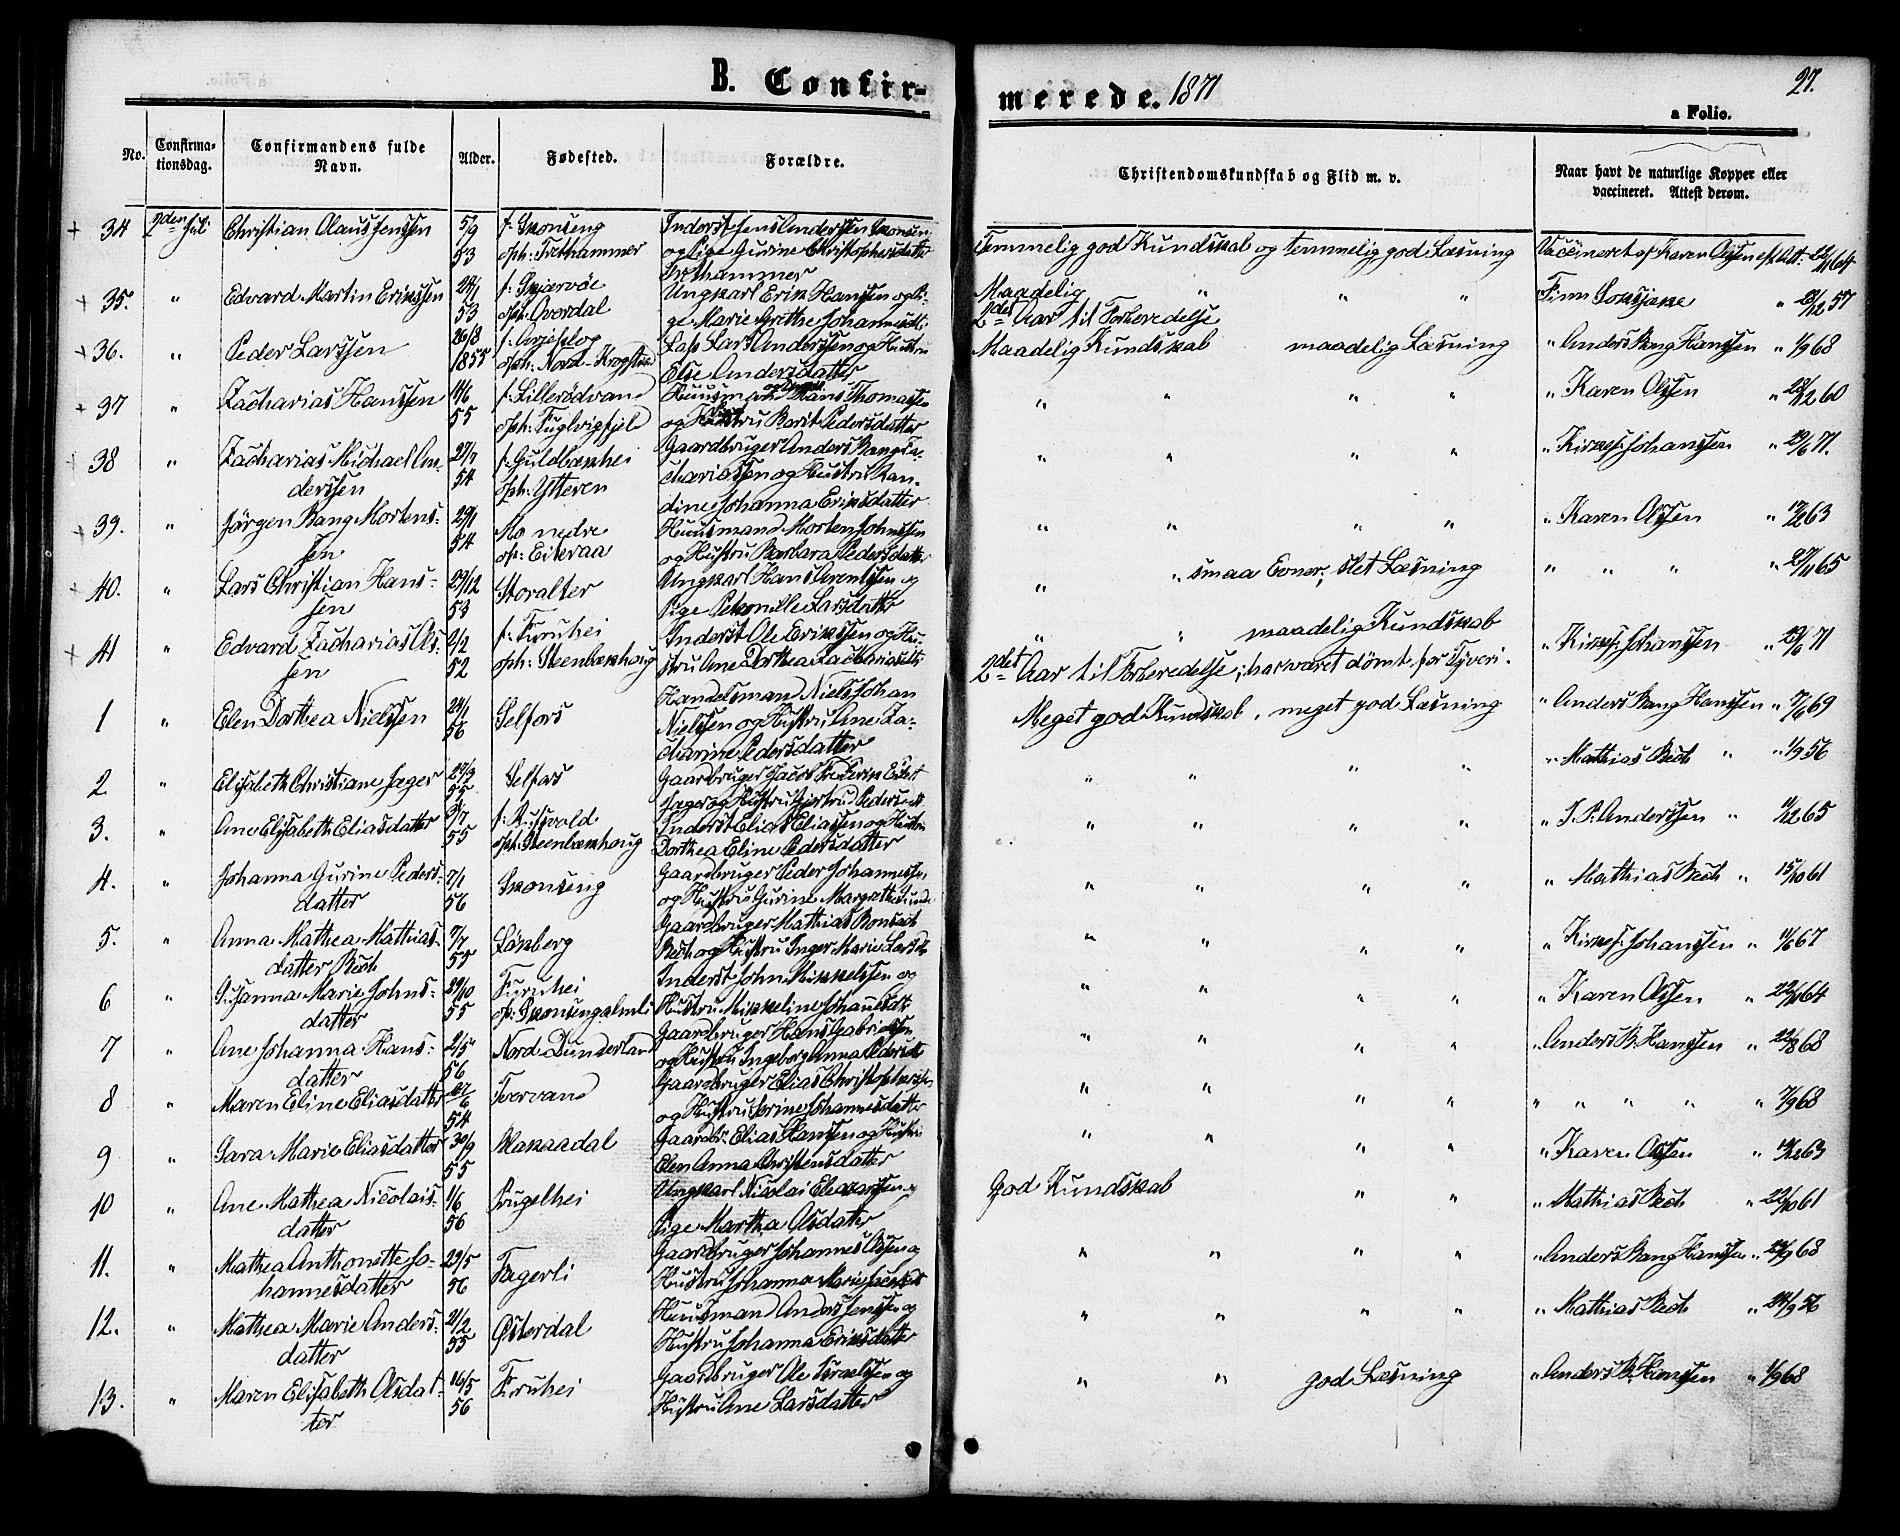 B. Confirmerede. 1871
27.
a Folio.
No. Confirmationsdag. Confirmandens fulde Navn. Alder. Fødested. Forældre. Christendomskundskab og Flid m. v. Naar havt de naturlige Kopper eller vaccineret. Attest derom.
34 2den Juli Christian Olaus Jenssen 5/9 53 f. Skonseng oph: Trethammer Inderst Jens Anderssen Skonseng og Pige Gurine Christophersdatter Trethammer Temmelig god Kundskab og temmelig god Læsning Vaccineret af Karen Olssen
35. " Edvard Martin Erikssen 24/1 53 f. Skjervøe oph. Qvordal Ungkarl Erik Hanssen og Pige Marie Grethe Johannesdtr Maadelig " " " 2det Aar til Forberedelse Finn " 57
36. " Peder Larssen 26/8 1855 f. Arjeplog oph: Nord- Lap Lars Anderssen og Hustru Else Andersdatter Maadelig Kundskab maadelig Læsning " Anders Bang Hanssen " 1/9 68
37 " Zacharias Hanssen 11/6 55 f. Lillerødvand oph: Fuglvigfjeld Huusmand Hans Thomassen og Hustru Berit Pedersdatter " " " " " Karen Olssen " 60
38 " Zacharias Michael Anderssen 27/7 54 f. Guldbækhei oph: Ytteren Gaardbruger Anders Bang Zachariassen og Hustru Randine Johanna Eriksdatter " " " " " Kirkes. Johanssen " 29/6 71.
39. " Jörgen Bang Mortenssen 29/1 54 Mo nedre op: Eiteraa Huusmand Morten Johnssen og Hustru Barbara Pedersdatter " " " " " Karen Olssen " 63
40. " Lars Christian Hanssen 29/12 53 Storalter Ungkarl Hans Arentssen og Pige Petronille Larsdatter " " smaa Evner; slet Læsning " " " " 65
41 " Edvard Zacharias Olssen 2/2 52 f. Furuhei oph: Steenbækhaug Inderst Ole Erikssen og Hustru Ane Dorthea Zachariasdtr " " maadelig Kundskab 2det Aar til Forberedelse; har været dömt for Tyveri. " Kirkes. Johanssen " 29/6 71
1 " Elen Dorthea Nielssen 24/1 56 Selfors Handelsmand Niels Johan Nielssen og Hustru Ane Zacharine Pedersdatter Meget god Kundskab, meget god Læsning " Anders Bang Hanssen " 7/6 69
2 " Elisabeth Christiane Jæger 27/3 55 Selfors Gaardbruger Jacob Frederik Jæger og Hustru Gjertrud Pedersdtr " " " " " Mathias Bech " " 1/9 56
3. " Ane Elisabeth Eliasdatter 31/7 55 f. Rufsvold oph: Steenbækhaug Inderst Elias Eliassen og Hustru Dorthea Eline Pedersdatter " " " " " J. P. Anderssen " 11/12 65
4. " Johanna Gurine Pedersdatter 7/1 56 Skonseng Gaardbruger Peder Johannessen og Hustru Gurine Margrethe " " " " " Mathias Bech " 15/10 61
5. " Anna Mathea Mathiasdatter Bech 7/7 55 Langberg Gaardbruger Mathias Bonsach Bech og Hustru Inger Marie Larsdtr " " " " " Kirkes. Johanssen " 11/6 67
6 " Susanna Marie Johnsdatter 29/10 55 Furuhei op: Skonsengalmli Inderst John Mikkelssen og Hustru Mikkeline Johansdtr " " " " " Karen Olssen " 64
7 " Ane Johanna Hansdatter 2/5 56 Nord Dunderland Gaardbruger Hans Gabrielssen og Hustru Ingeborg Anna Pedersdtr " " " " " Anders B. Hanssen " 22/8 68
8 " Maren Eline Eliasdatter 27/6 54 Tvervand Gaardbruger Elias Christophersen og Hustru Serine Johannesdatter " " " " " " " " " 7/9 68
9 " Sara Marie Eliasdatter 30/9 55 Plakaadal Gaardbr. Elias Hanssen og Hustru Elen Anna Christensdatter " " " " " Karen Olssen " 63
10 " Ane Mathea Nicolaisdatter 1/6 56 Prugelhei Ungkarl Nicolai Eleazarssen og Pige Martha Olsdatter God Kundskab " " " Mathias Bech " 22/10 61
11. " Mathea Anthonette Johannesdatter 29/5 56 Fagerli Gaardbruger Johannes Olssen og Hustru Johanna Marie " " " " " Anders Bang Hanssen " 68
12. " Mathea Marie Andersdatter 21/2 55 Østerdal Huusmand Anders Jenssen og Hustru Johanna Eriksdatter " " " " " Mathias Bech " 24/9 56
13. " Maren Elisabeth Olsdatter 16/5 56 Furuhei Gaardbruger Ole Israelssen og Hustru Ane Larsdatter " " god Læsning " Anders B. Hanssen " 1/9 68